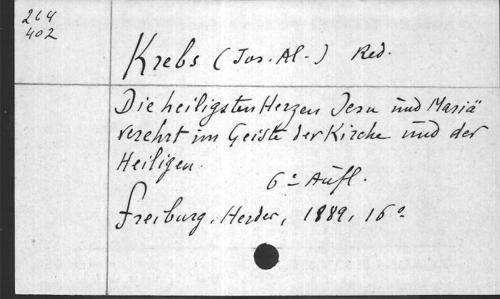 264
402
Krebs (Jos. Al.) Red.
Die heiligsten Herzen Jesu und Mariä
verehrt im Geiste der Kirche und der
Heiligen.
6e Aufl.
Freiburg, Herder, 1889, 16o